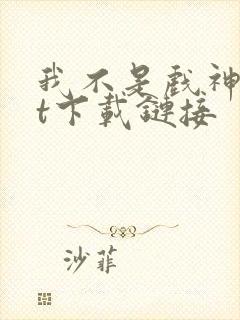 我不是戏神
t下载鏈接
沙菲